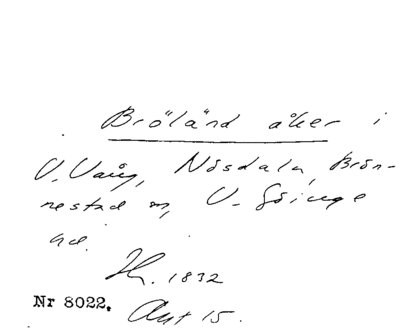 Bröländ åker i
V. Vång, Nösdala, Brön-
nestad sn, V. Göinge
hd.
Hr. 1832
Nr 8022. Ant 15.